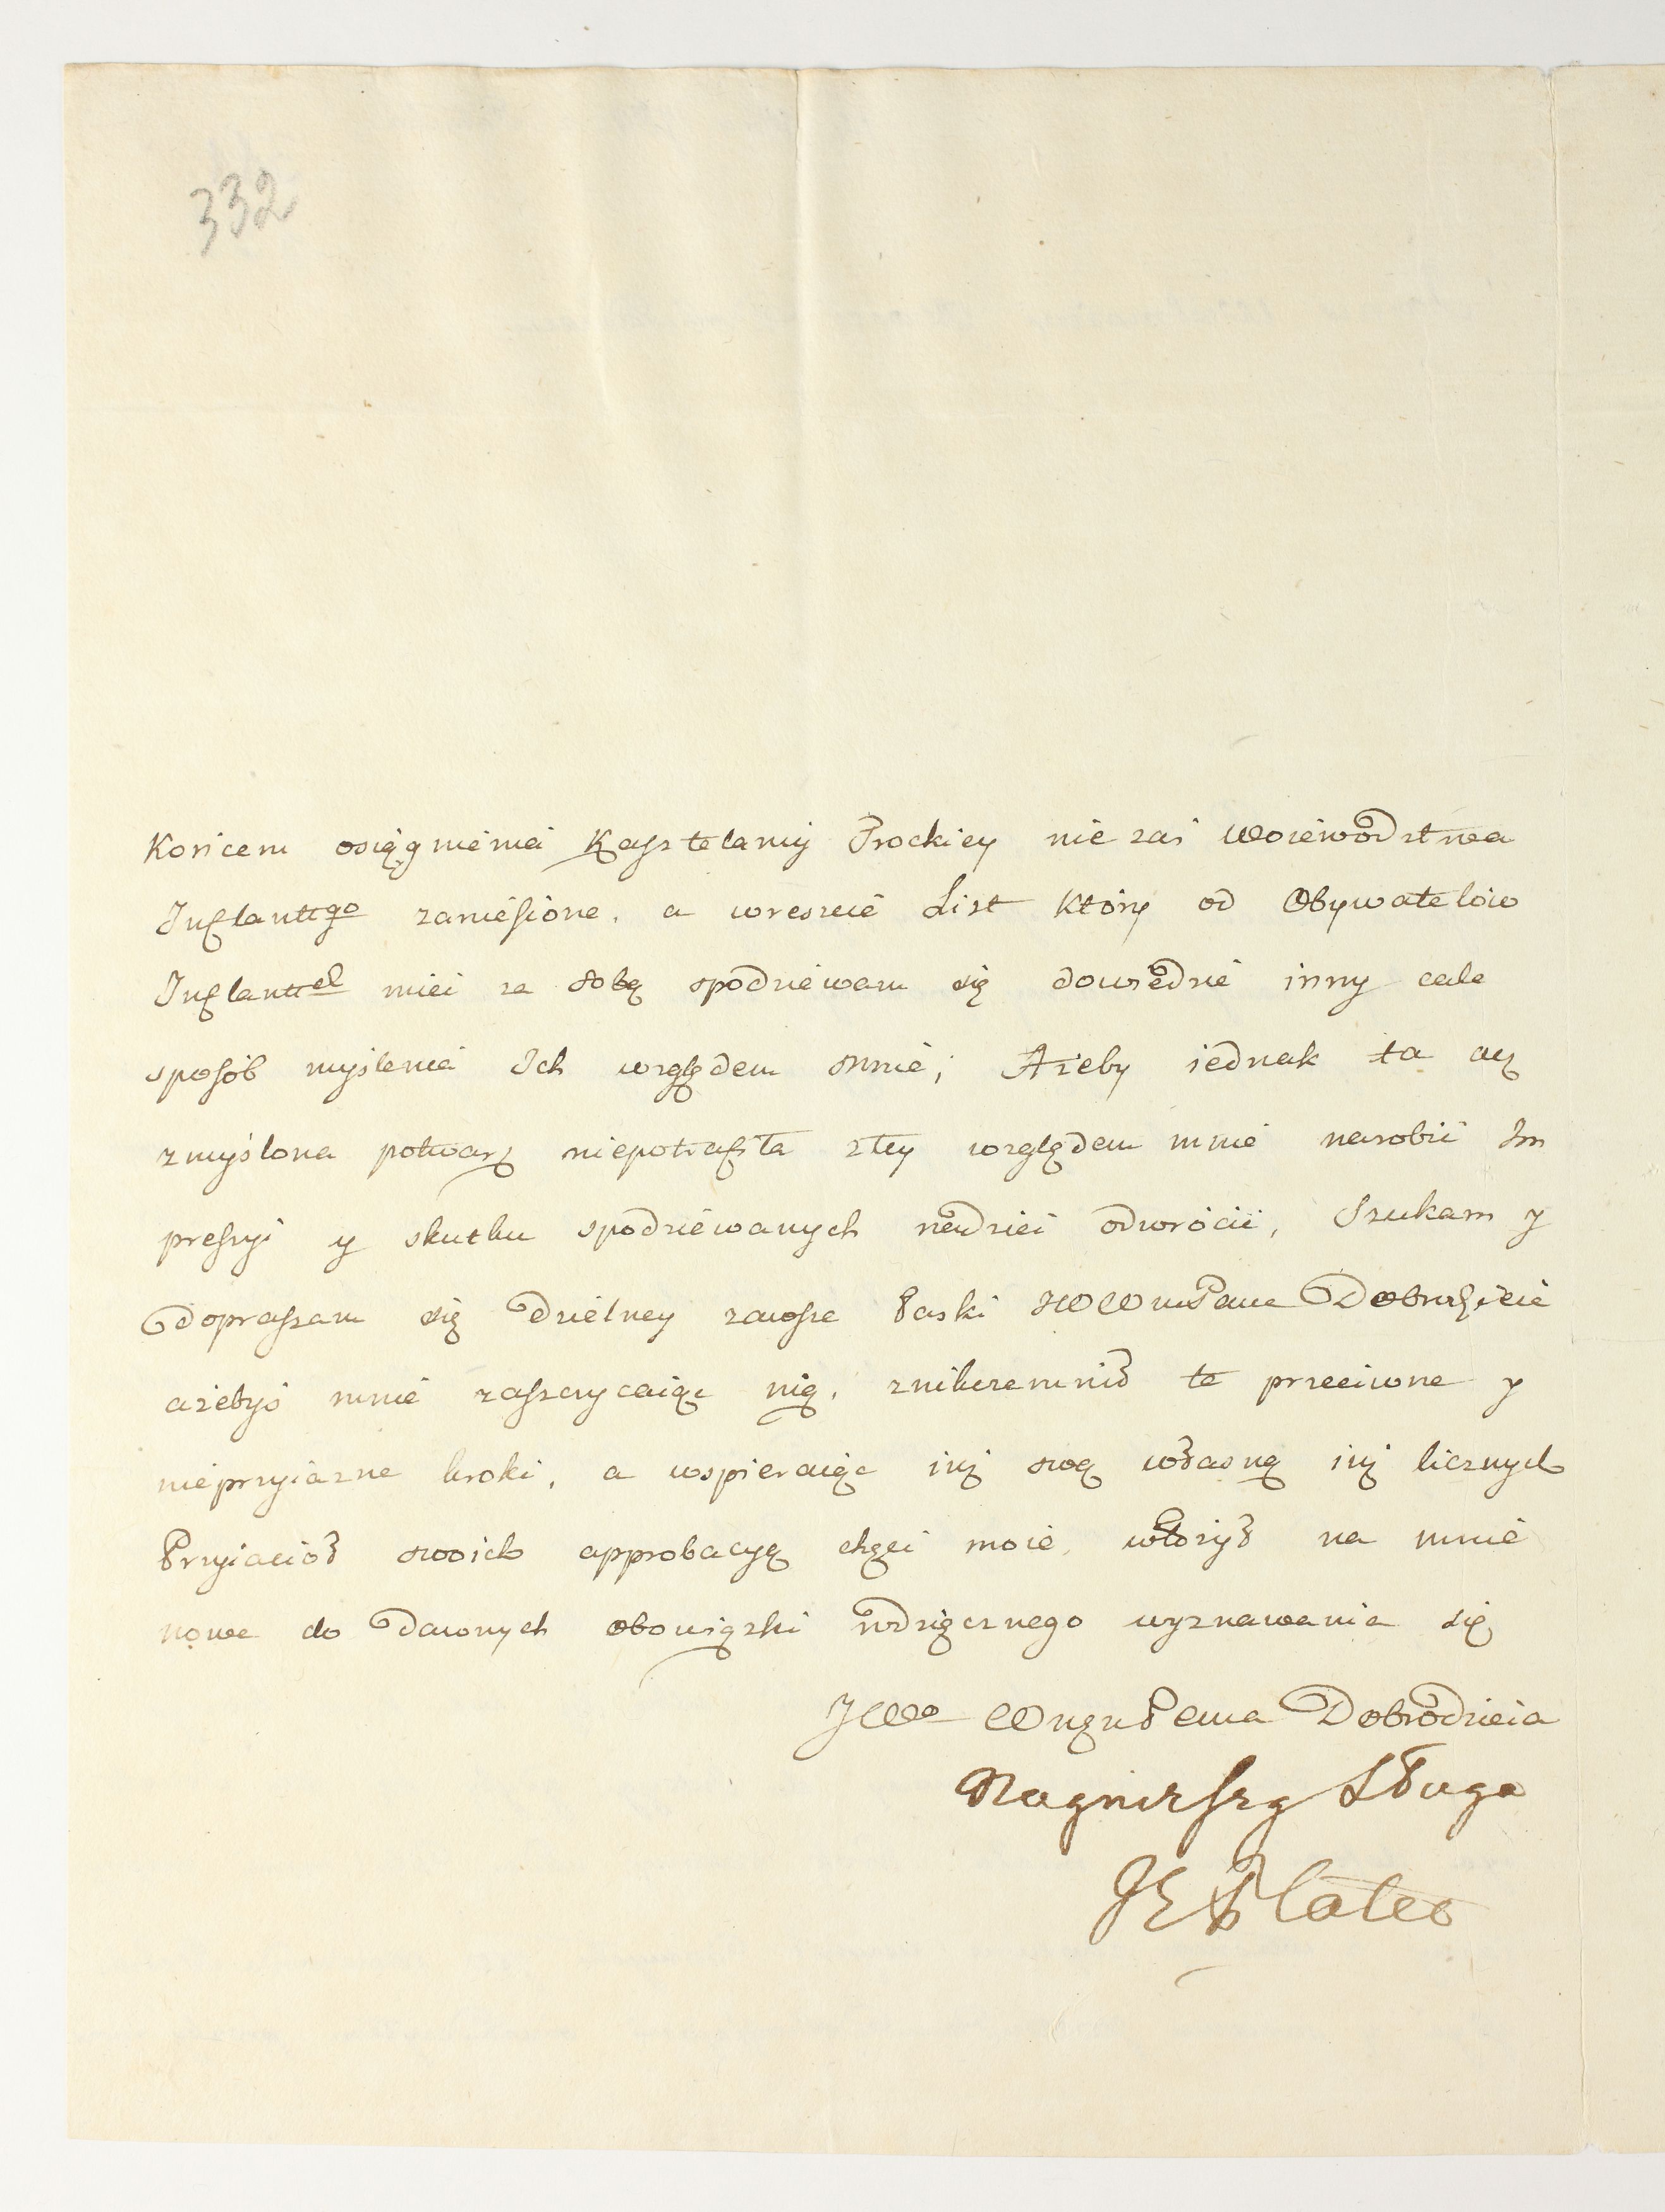 332
Końcem osiągnienia Kasztelanij Trockiey nie zaś Woiewodztwa
Inflanttgo zaniesione, a wreszcie List który od Obywatelow
Inflanttch mieć za sobą spodziewam się dowiedzie inny cale
sposób myślenia Ich względem mnie; Ażeby iednak ta acz
zmyślona potwarz niepotrafiła złey względem mnie narobić Im
presyi y skutku spodziewanych nadziei odwrócić, Szukam y
Dopraszam się dzielney zawsze łaski JWWmPana Dobrodzieia
ażebyś mnie zaszczycaiąc nią, znikczemnił te przeciwne y
nieprzyiazne kroki, a wspieraiąc iuż swą własną iuż licznych
Przyiaciół swoich approbacyą chęci moie, włożył na mnie
nowe do dawnych obowiązki wdzięcznego wyznawania się
JWo Pana Dobrodzieia
Nayniższy Sługa
JE Plater